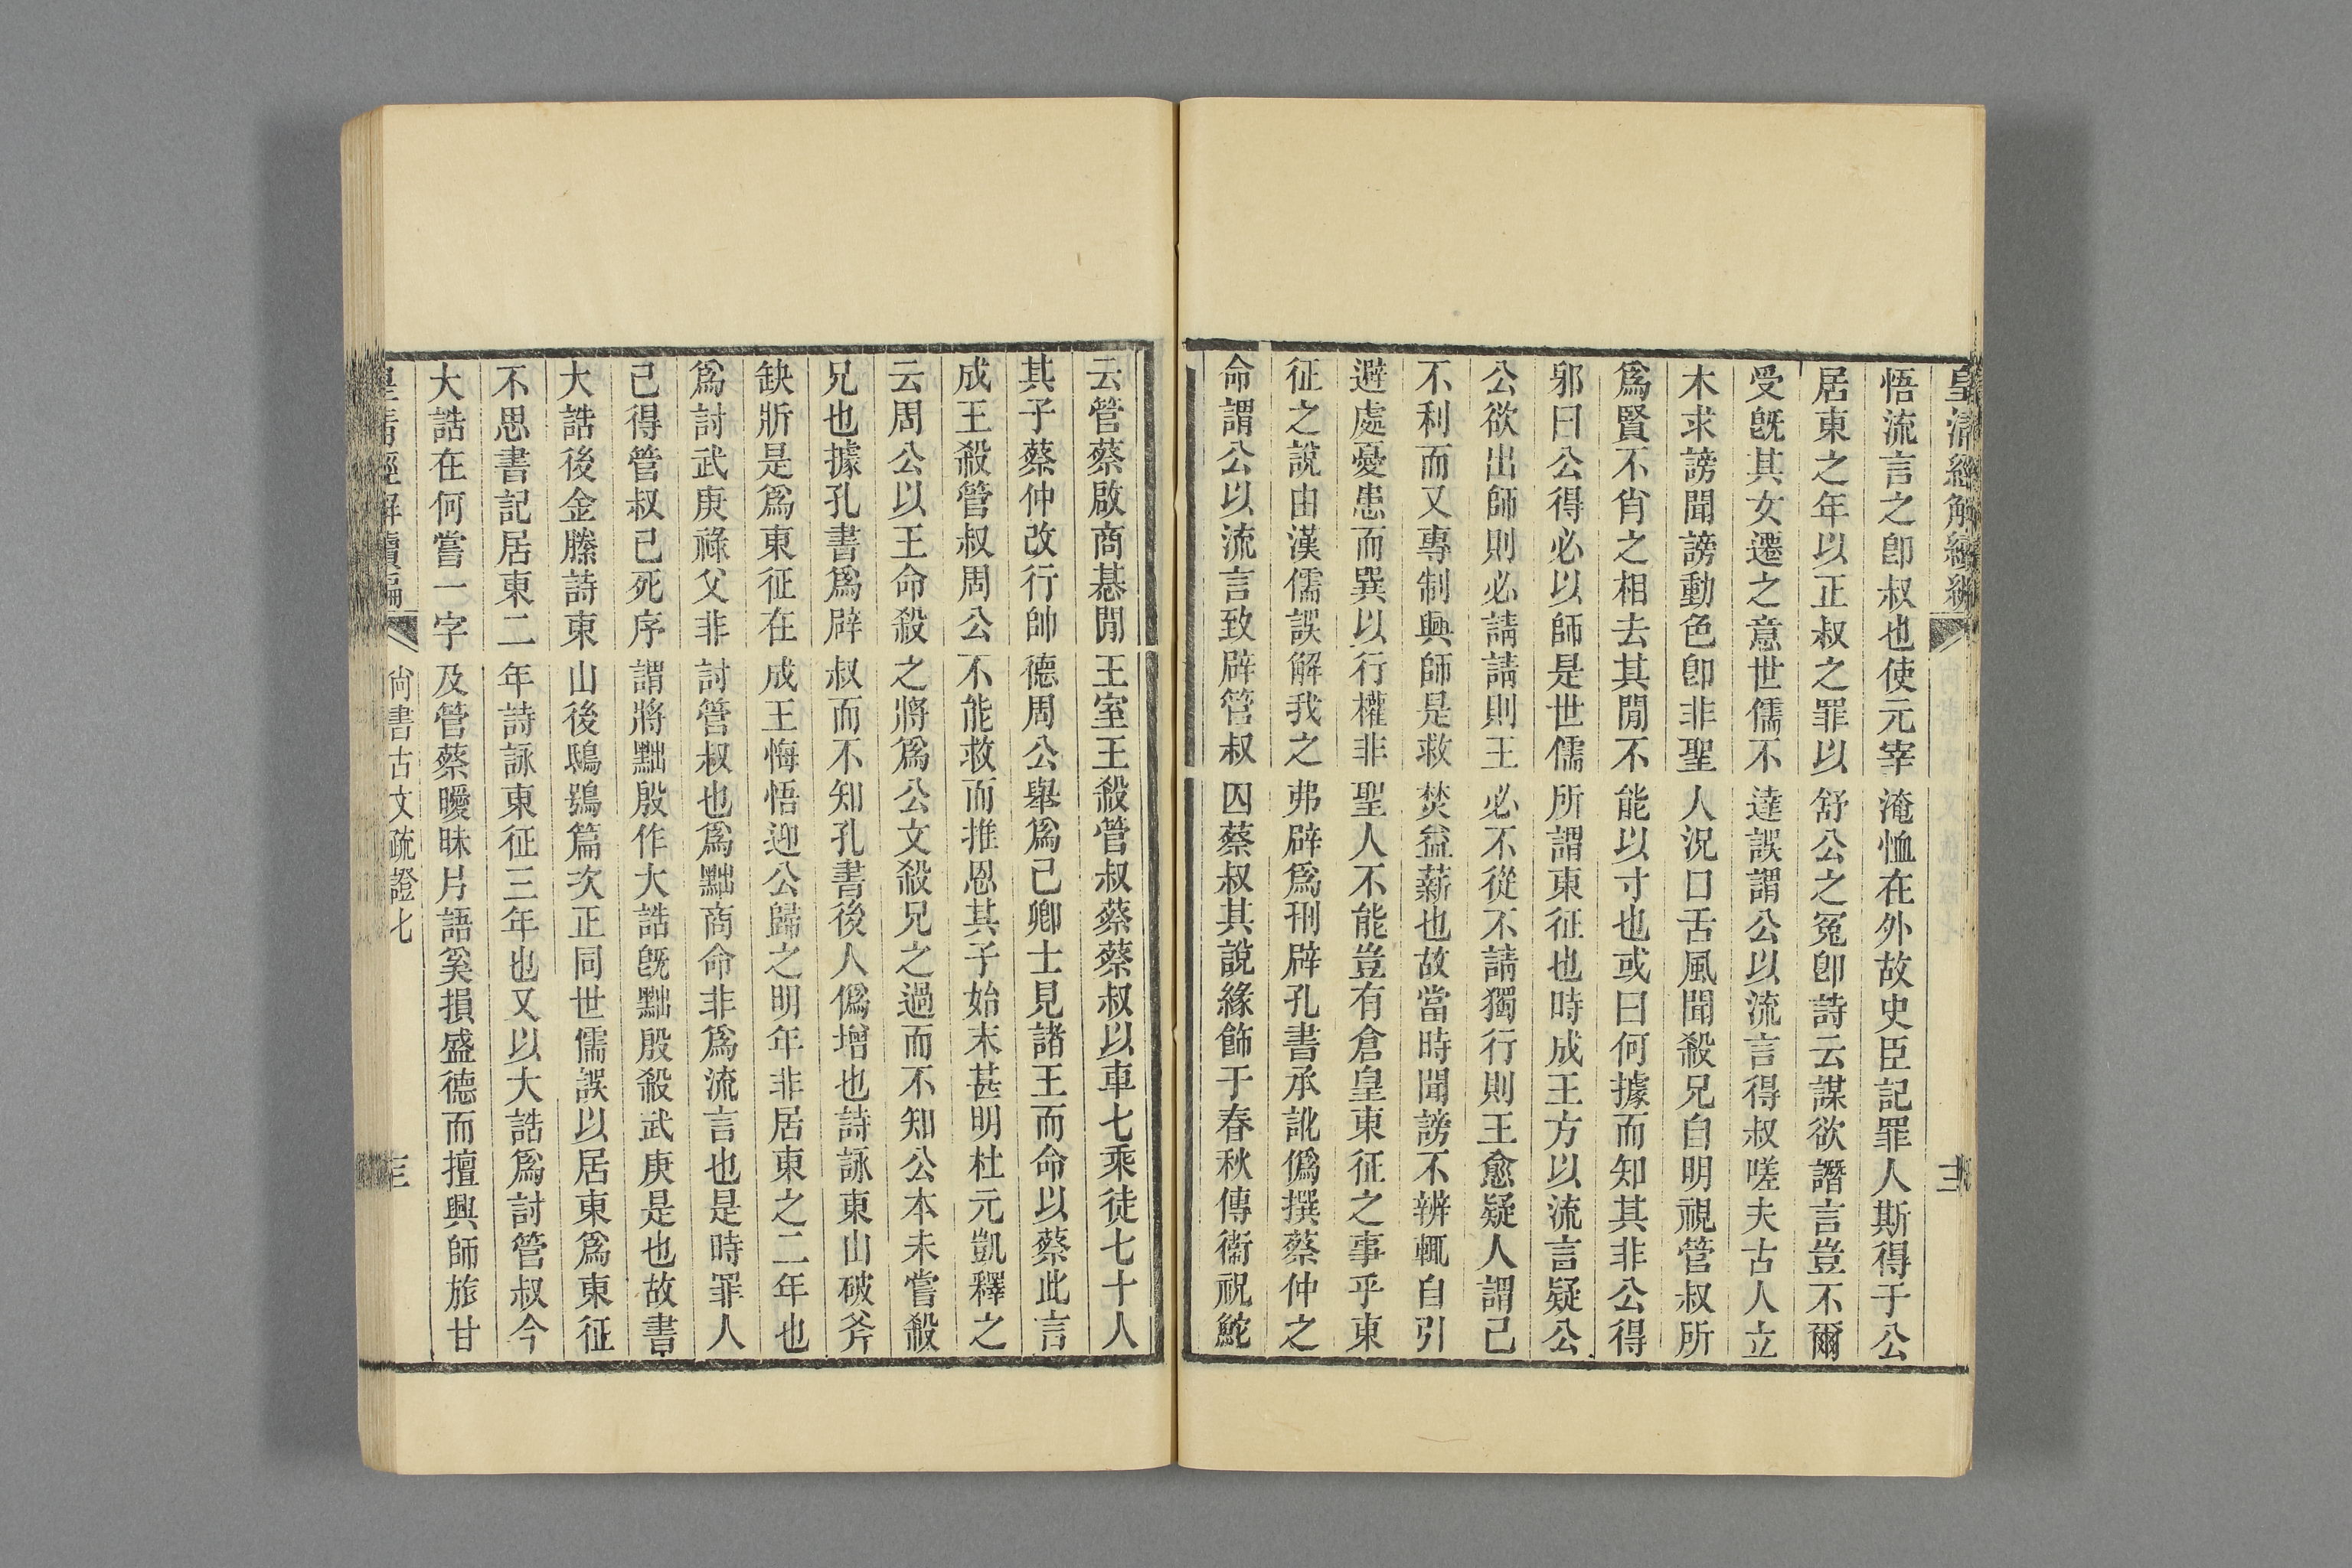 皇清經解續編
悟流言之卽叔也使元宰淹恤在外故史臣記罪人斯得于公
居東之年以正叔之罪以舒公之冤卽詩云謀欲譖言豈不爾
受旣其女遷之意世儒不達誤謂公以流言得叔嗟夫古人立
木求謗聞謗動色卽非聖人況口舌風聞殺兄自明視管叔所
爲賢不肖之相去其閒不能以寸也或曰何據而知其非公得
郍曰公得必以師是世儒所謂東征也時成王方以流言疑公
公欲出師則必請請則王必不從不請獨行則王愈疑人謂己
不利而又專制興師是救焚益薪也故當時聞謗不辨輒自引
避處憂患而巽以行權非聖人不能豈有倉皇東征之事乎東
征之說由漢儒誤解我之弗辟爲刑辟孔書承訛僞撰蔡仲之
命謂公以流言致辟管叔囚蔡叔其說緣飾于春秋傳衞祝鮀
云管蔡啟商惎閒王室王殺管叔蔡蔡叔以車七乘徒七十人
其子蔡仲改行帥德周公舉爲己卿士見諸王而命以蔡此言
成王殺管叔周公不能救而推恩其子始末甚明杜元凱釋之
云周公以王命殺之將爲公文殺兄之過而不知公本未嘗殺
兄也據孔書爲辟叔而不知孔書後人僞增也詩詠東山破斧
缺斨是爲東征在成王悔悟迎公歸之明年非居東之二年也
爲討武庚祿父非討管叔也爲黜商命非爲流言也是時罪人
已得管叔已死序謂將黜殷作大誥旣黜殷殺武庚是也故書
大誥後金縢詩東山後鴟鴞篇次正同世儒誤以居東爲東征
不思書記居東二年詩詠東征三年也又以大誥爲討管叔今
大誥在何嘗一字及管蔡曖昧片語奚損盛德而擅興師旅甘
皇淸經解續編 尙書古文疏證七 三